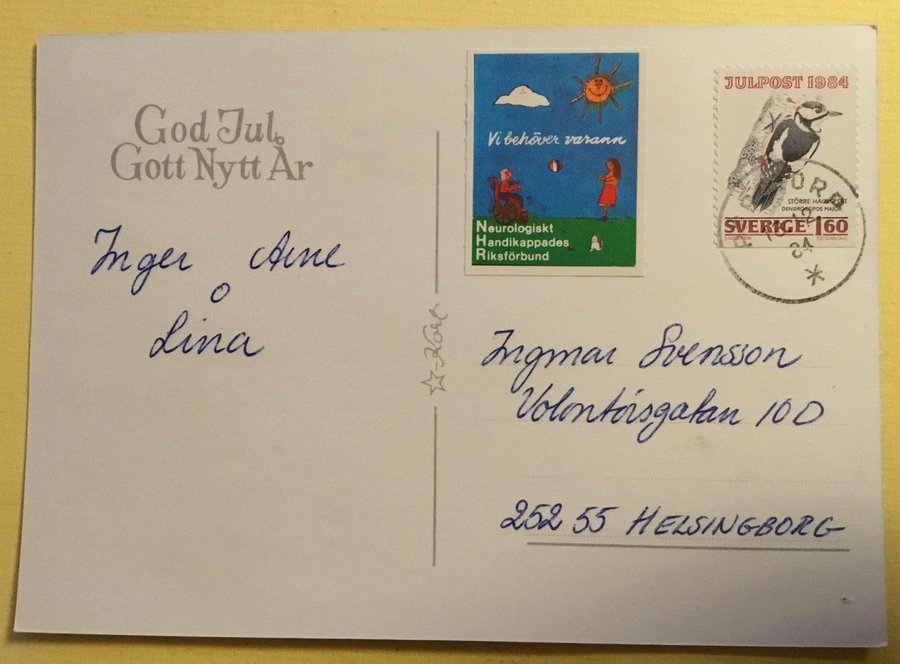 God Jul
Gott Nytt År
Inger Arne
o
Lina
☆-Kort
Vi behöver varann
Neurologiskt
Handikappades
Riksförbund
JULPOST 1984
STÖRRE HACKSPETT
DENDROCOPOS MAJOR
SVERIGE 160
84
Ingmar Svensson
Volontörsgatan 10 D
252 55 HELSINGBORG